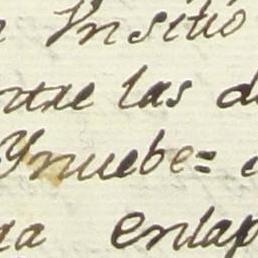 Ynsitio
ntre las d
Ynuebe=
ga enlap